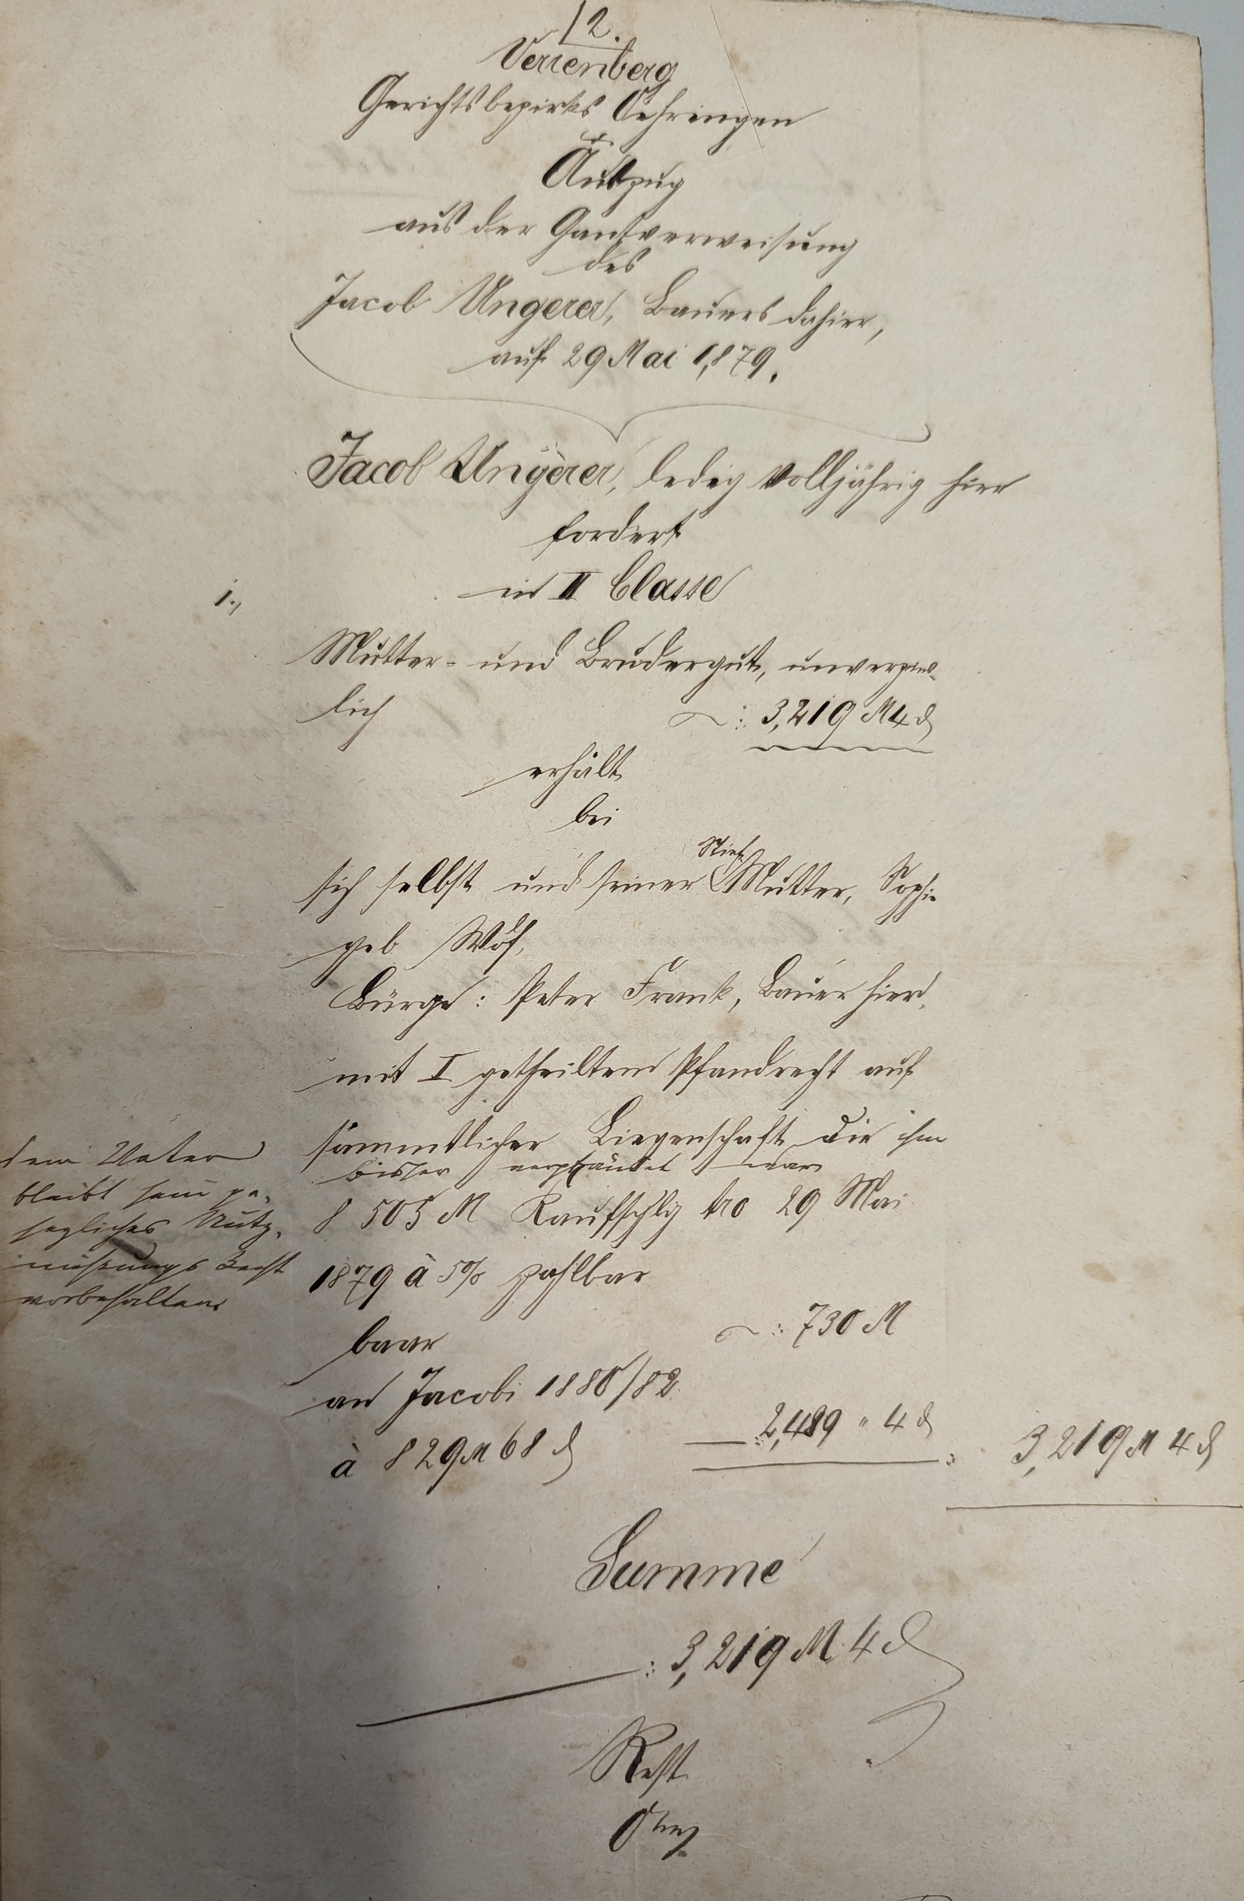 12.
Verrenberg
Gerichtsbezirks Oehringen
Auszug
aus der Gantverweisung
des
Jacob Ungerer, Bauers dahier,
auf 29 Mai 1,879.
Jacob Ungerer, ledig volljährig hier
fordert
in II Classe
1.,
Mutter- und Brudergut, unverzins-
lich : 3,219 M 4 d
erhält
bei
sich selbst und seiner Stief Mutter, Sophie
geb
Bürge: Peter Frank, Bauer hier,
mit I getheiltem Pfandrecht auf
sämmtlicher Liegenschaft die ihm
bisher verpfändet war
8 505 M Kaufschlg pro 29 Mai
1879 à 5% zahlbar
baar : 730 M
an Jacobi 1880/82
à 829 M 68 d 2,489 " 4 d : 3,219 M 4 d
dem Vater
bleibt sein ge-
setzliches Nutz-
nießungs Recht
vorbehalten
Summe
: 3,219 M. 4 d
Rest